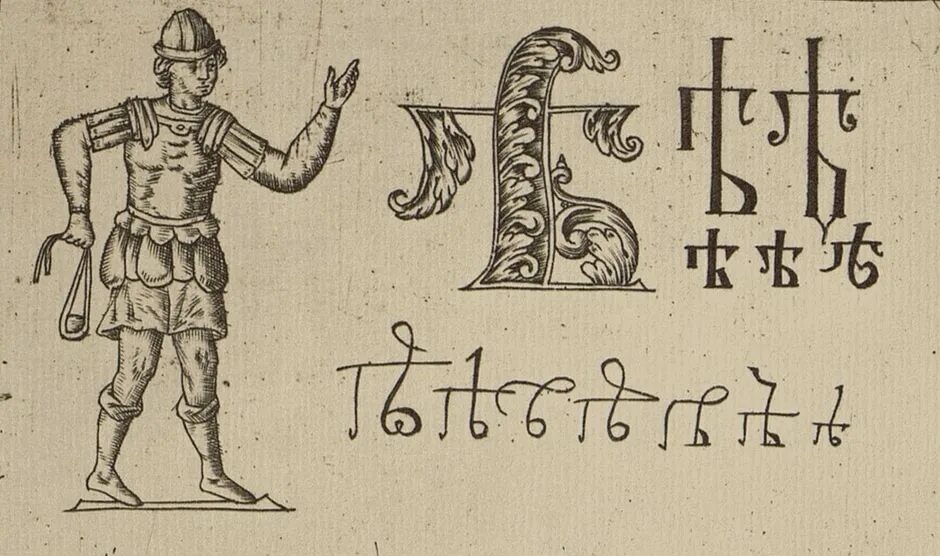 Ѣ Ѣ Ѣ
ѣ ѣ ѣ
ѣ ѣ ѣ ѣ ѣ ѣ ѣ